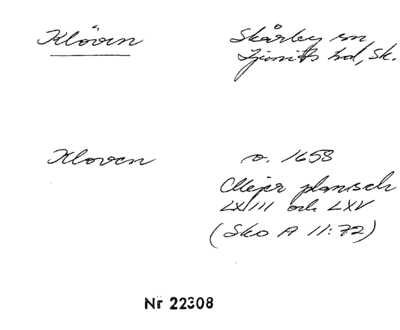 Klöven
Skårby sn
Ljunits hd, Sk.
Kloven
o. 1658
Mejer plansch
LXIII och LXV
(Sko A 11:72)
Nr 22308